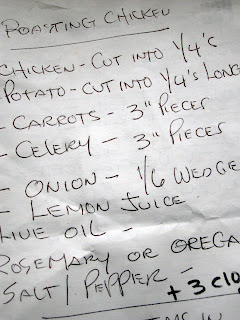 ROASTING CHICKEN
CHICKEN - CUT INTO 1/4'S
POTATO - CUT INTO 1/4'S LONG
- CARROTS - 3" PIECES
- CELERY - 3" PIECES
- ONION - 1/6 WEDGE
- LEMON JUICE
LIVE OIL -
ROSEMARY OR OREGA
SALT / PEPPER -
+ 3 CLO